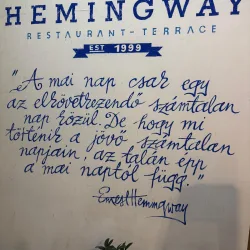 HEMINGWAY
RESTAURANT - TERRACE
EST 1999
"A mai nap csak egy
az elkövetkezendő számtalan
nap közül. De hogy mi
történik a jövő számtalan
napjain, az talán épp
a mai naptól függ."
Ernest Hemingway